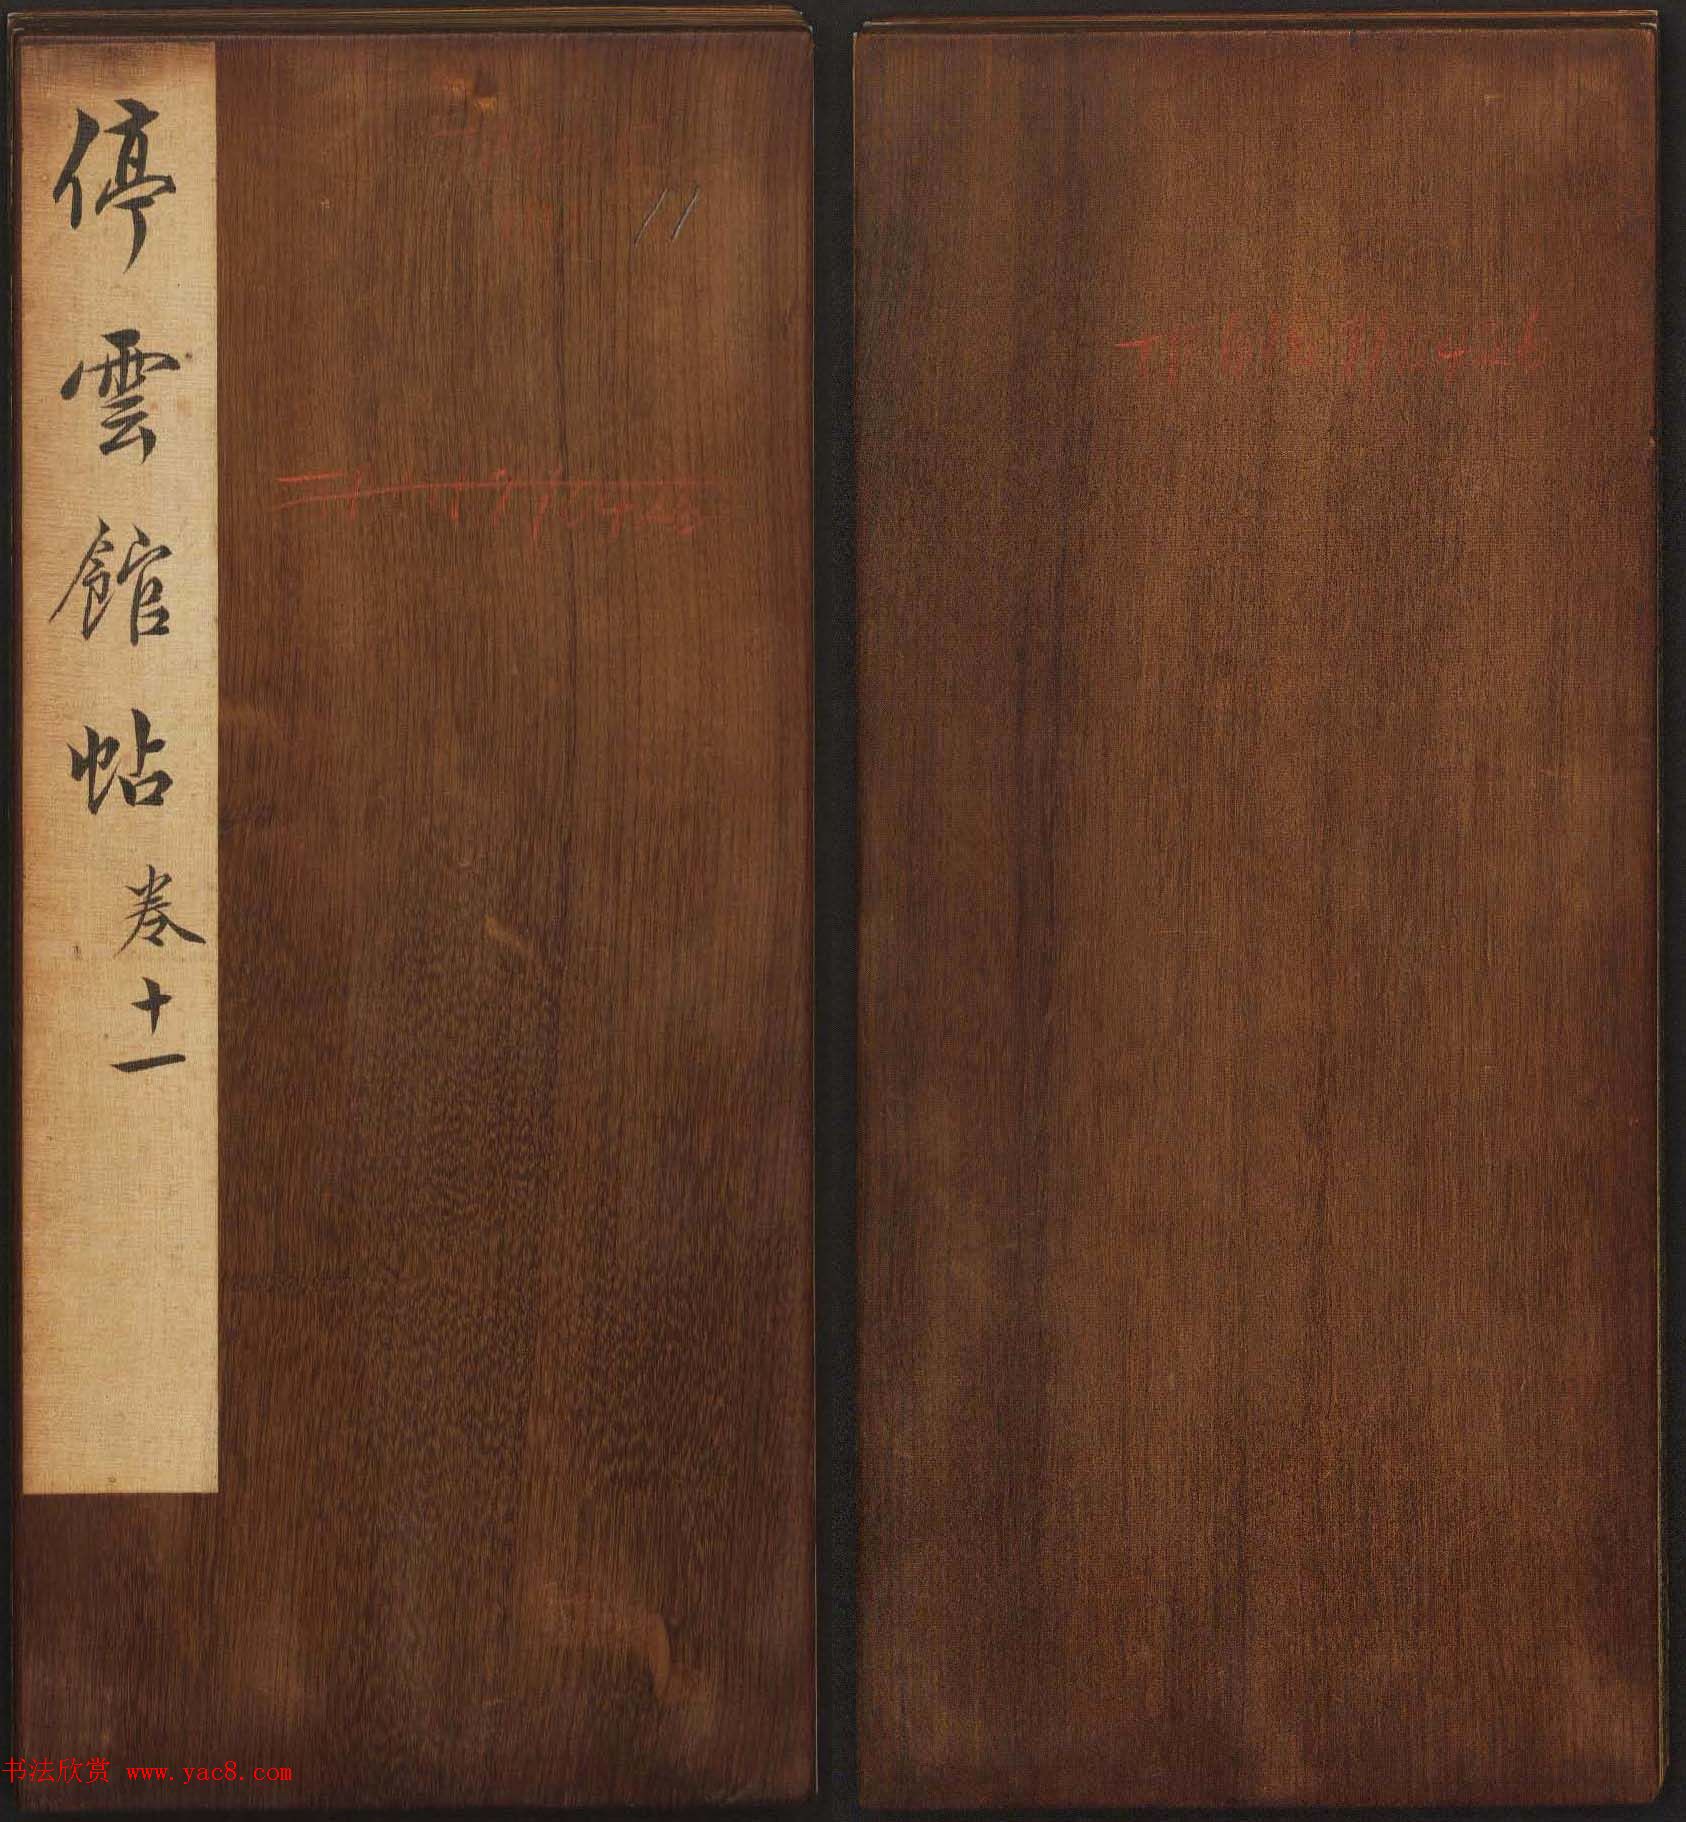 停雲館帖 卷十一
11
书法欣赏 www.yac8.com